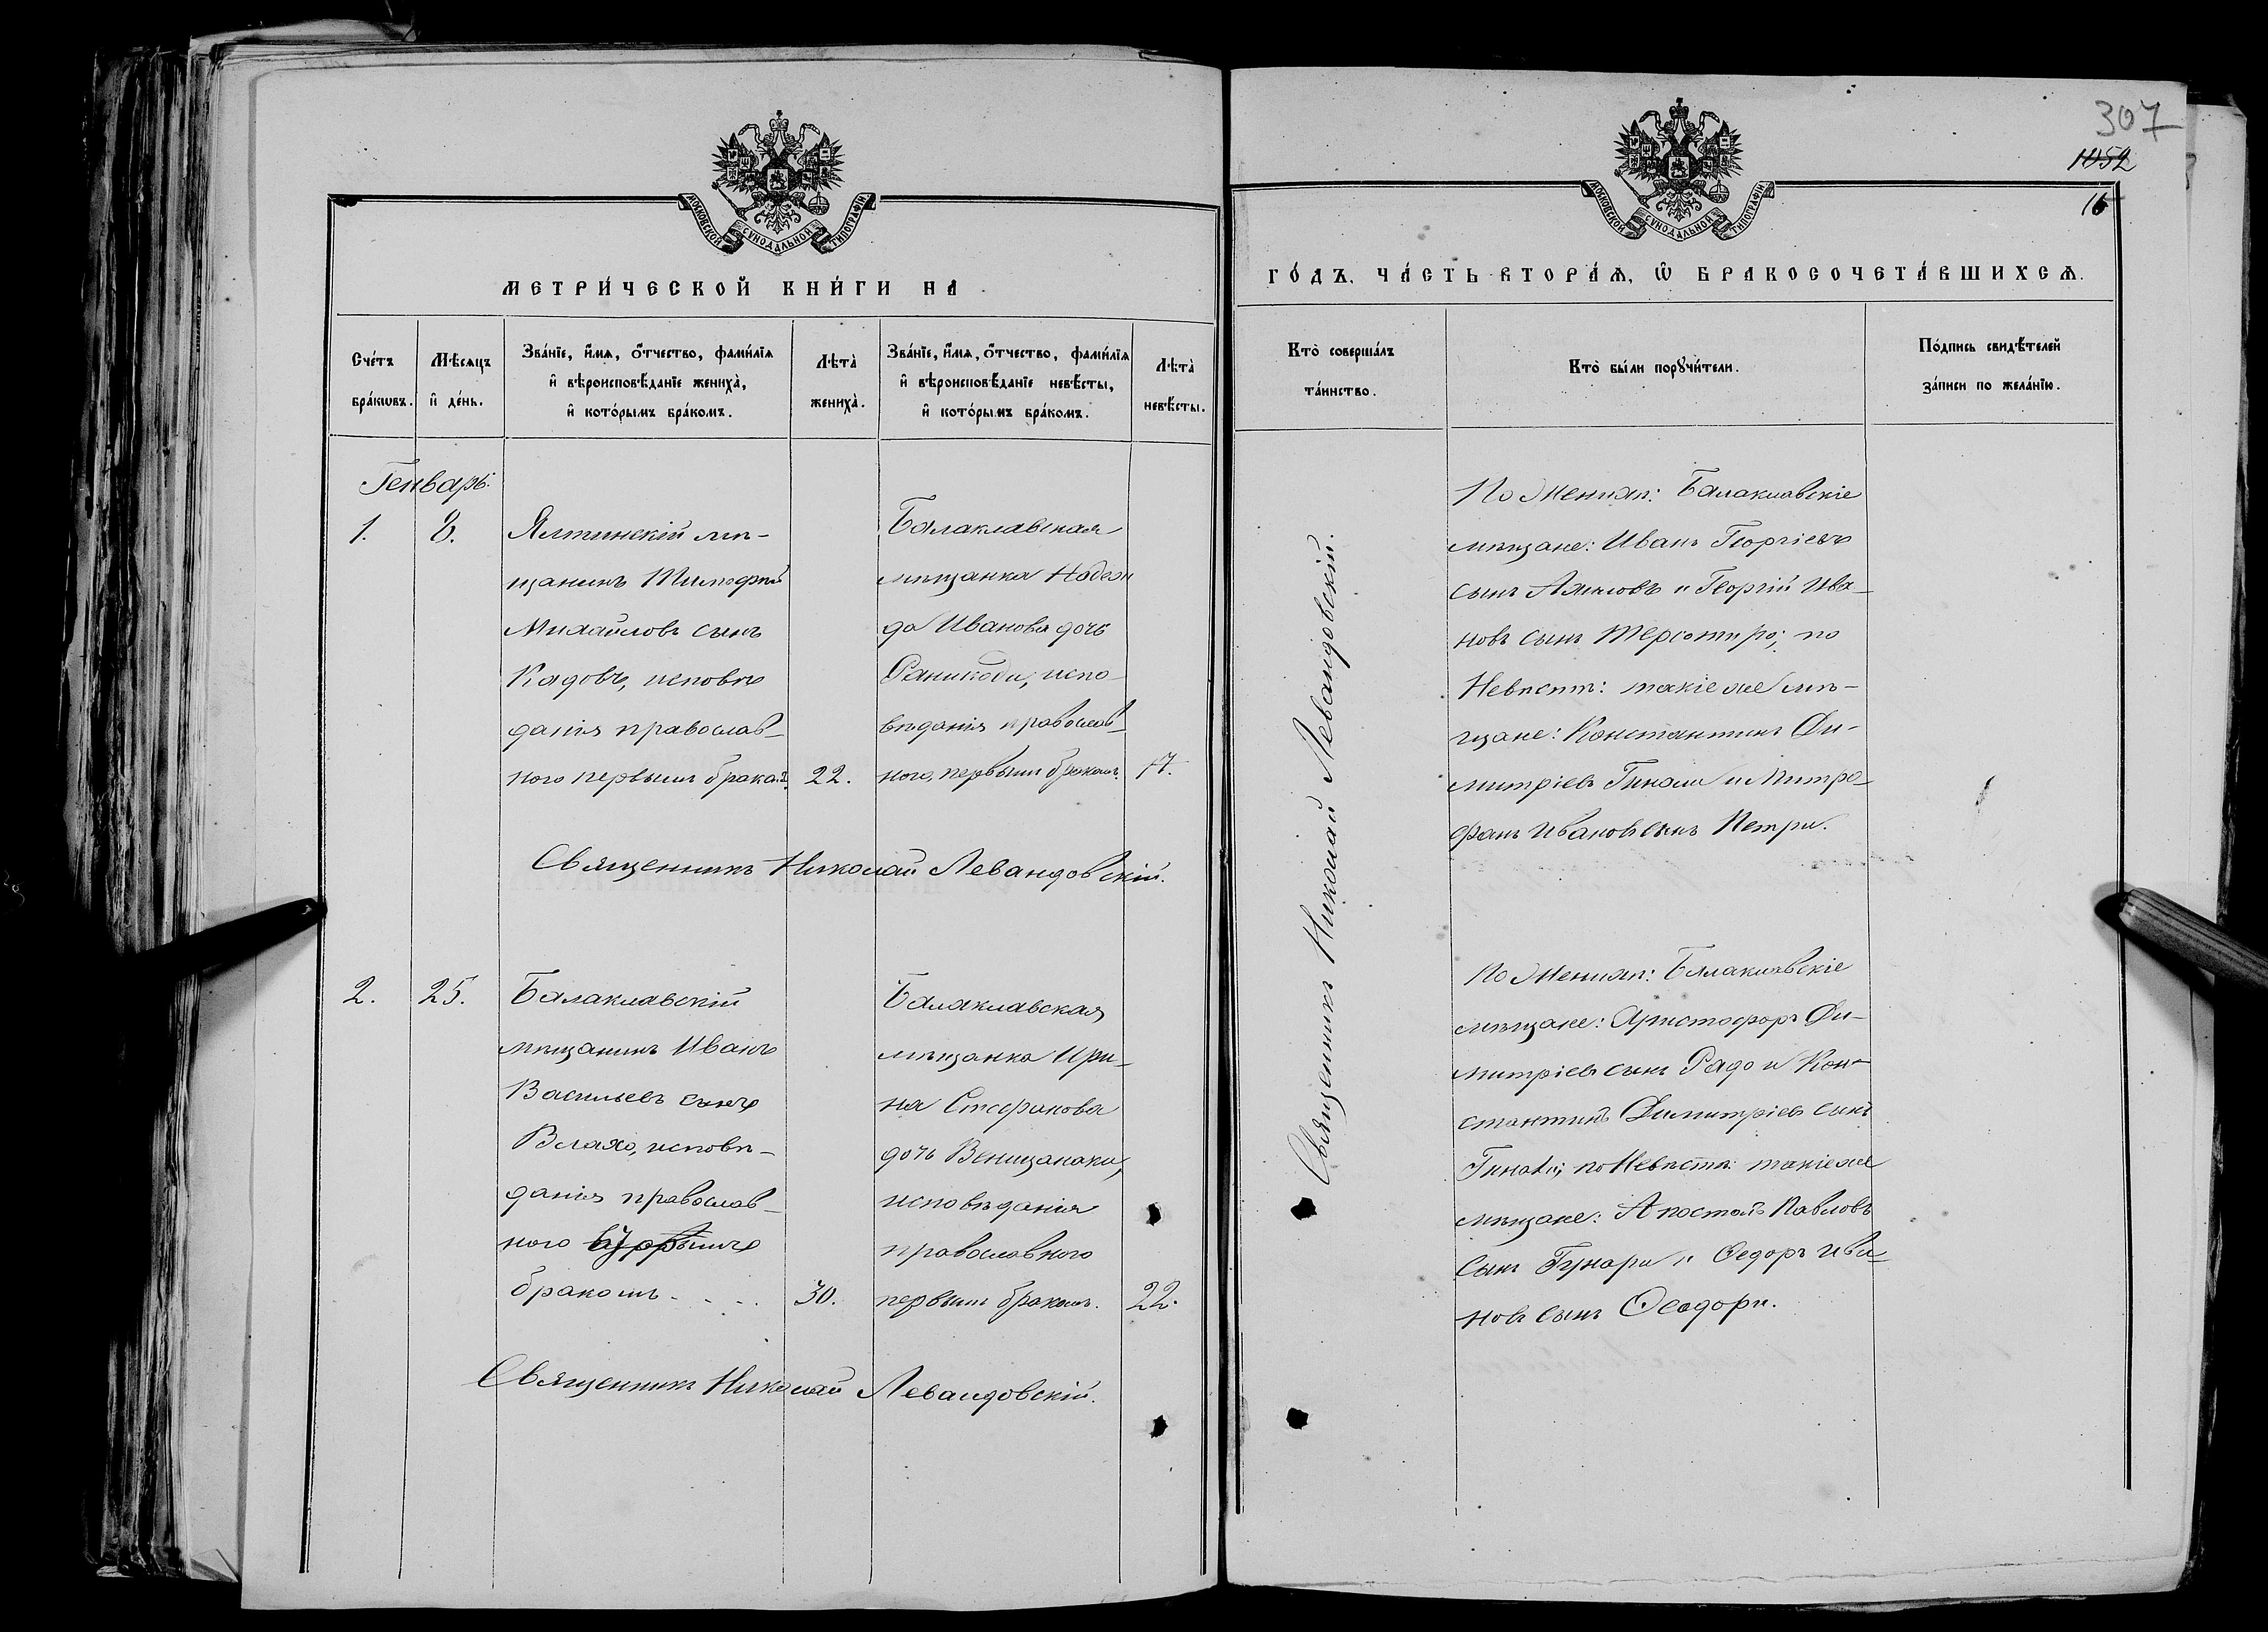 МОСКОВСКОЙ СѴНОДАЛЬНОЙ ТИПОГРАФІИ
МЕТРИ́ЧЕСКОЙ КНИ́ГИ НА
Сче́тъ бра́кѡвъ.
Мѣ́сѧцъ и҆ де́нь.
Зва́нїе, и҆́мѧ, ѻ҆́тчество, фами́лїѧ
и҆ вѣроисповѣ́данїе жениха̀,
и҆ кото́рымъ бра́комъ.
Лѣта̀ жениха̀.
Зва́нїе, и҆́мѧ, ѻ҆́тчество, фами́лїѧ
и҆ вѣроисповѣ́данїе невѣ́сты,
и҆ кото́рымъ бра́комъ.
Лѣта̀ невѣ́сты.
Генварь:
1.
8.
Ялтинскій мѣ-
щанинъ Тимофей
Михайловъ сынъ
Кадовъ, исповѣ
данія православ-
ного первымъ бракомъ.
22.
Балаклавская
мѣщанка Надеж
да Иванова дочь
испо
вѣданія православ-
ного, первымъ бракомъ.
17.
Священникъ Николай Левандовскій.
2.
25.
Балаклавскій
мѣщанинъ Иванъ
Васильевъ сынъ
Влахо, исповѣ-
данія православ-
ного
бракомъ - - - -
30.
Балаклавская
мѣщанка Ири-
на Стефанова
дочь
исповѣданія
православного
первымъ бракомъ.
22.
Священникъ Николай Левандовскій.
307
1052
16
МОСКОВСКОЙ СѴНОДАЛЬНОЙ ТИПОГРАФІИ
ГО́ДЪ, ЧА́СТЬ ВТОРА́Ѧ, Ѡ҆ БРАКОСОЧЕТА́ВШИХСѦ.
Кто̀ соверша́лъ
та́инство.
Кто̀ бы́ли порꙋчи́тели.
По́дпись свидѣ́телей
за́писи по жела́нїю.
Священникъ Николай Левандовскій.
По Женихѣ: Балаклавскіе
мѣщане: Иванъ Георгіевъ
сынъ и Георгій Ива-
новъ сынъ по
Невѣстѣ: такіе же мѣ-
щане: Константинъ Ди-
митріевъ Гинали и Митро-
фанъ Ивановъ сынъ Петри.
По Женихѣ: Балаклавскіе
мѣщане: Христофоръ Ди-
митріевъ сынъ Радо и Кон-
стантинъ Димитріевъ сынъ
Гинали; по Невѣстѣ: такіе же
мѣщане: Апостолъ Павловъ
сынъ и Ѳедоръ Ива-
новъ сынъ Ѳеодори.